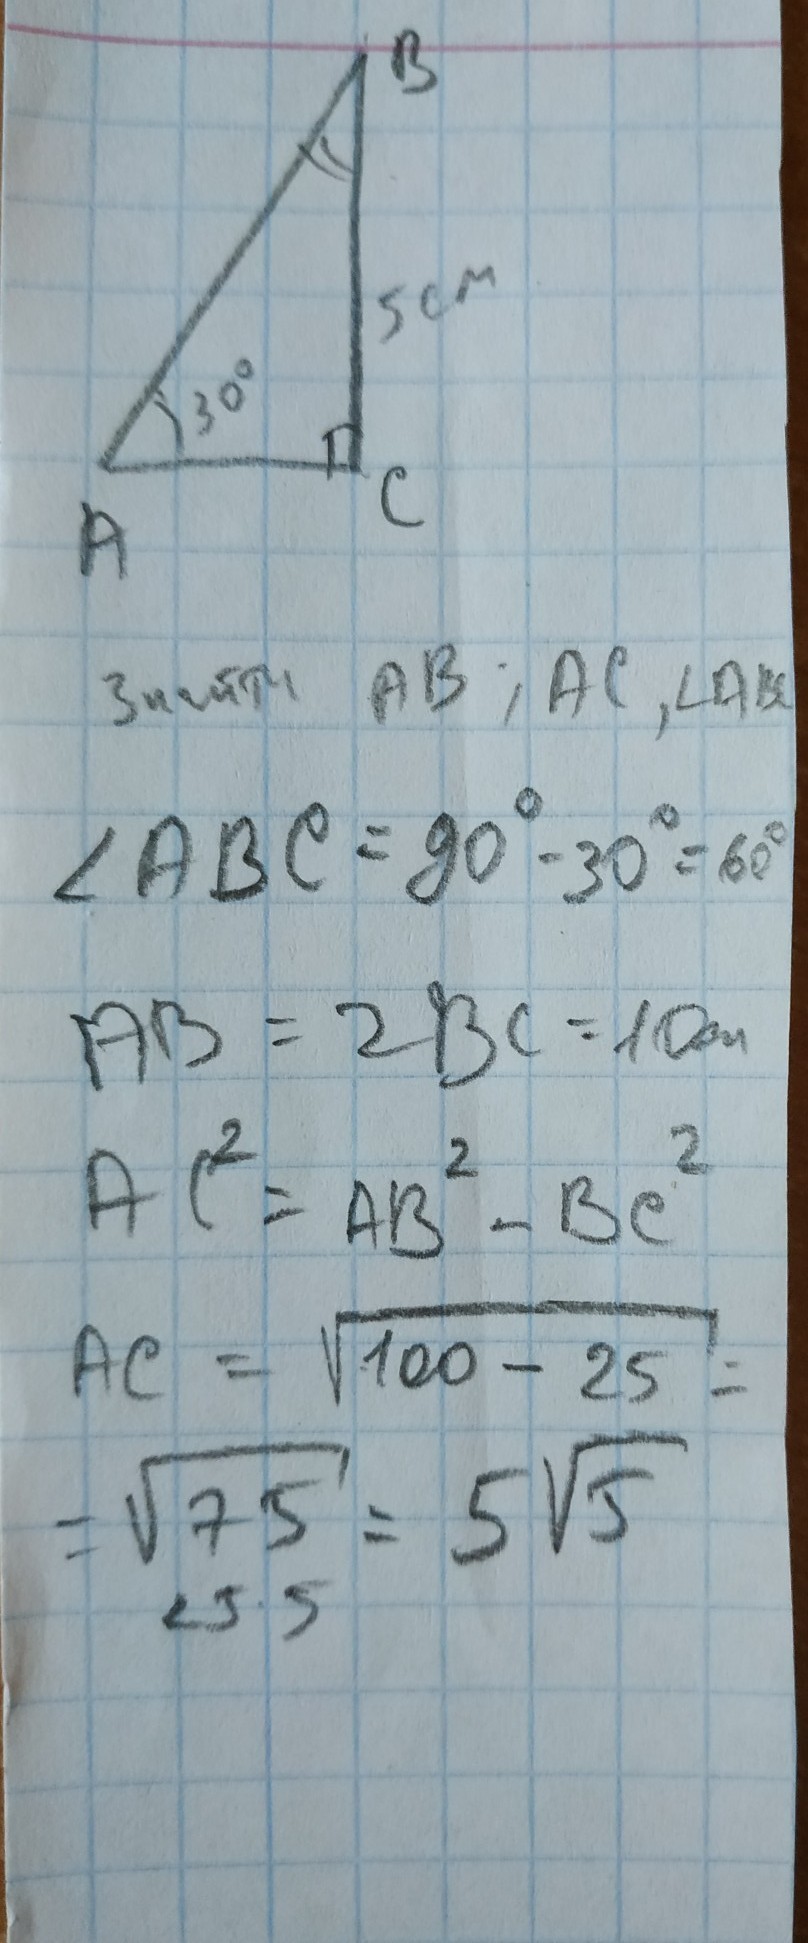 B
5 см
30°
A
C
Знайти AB; AC, ∠ABC
∠ABC = 90° - 30° = 60°
AB = 2BC = 10см
AC² = AB² - BC²
AC = √100 - 25 =
= √75 = 5√5
25·5